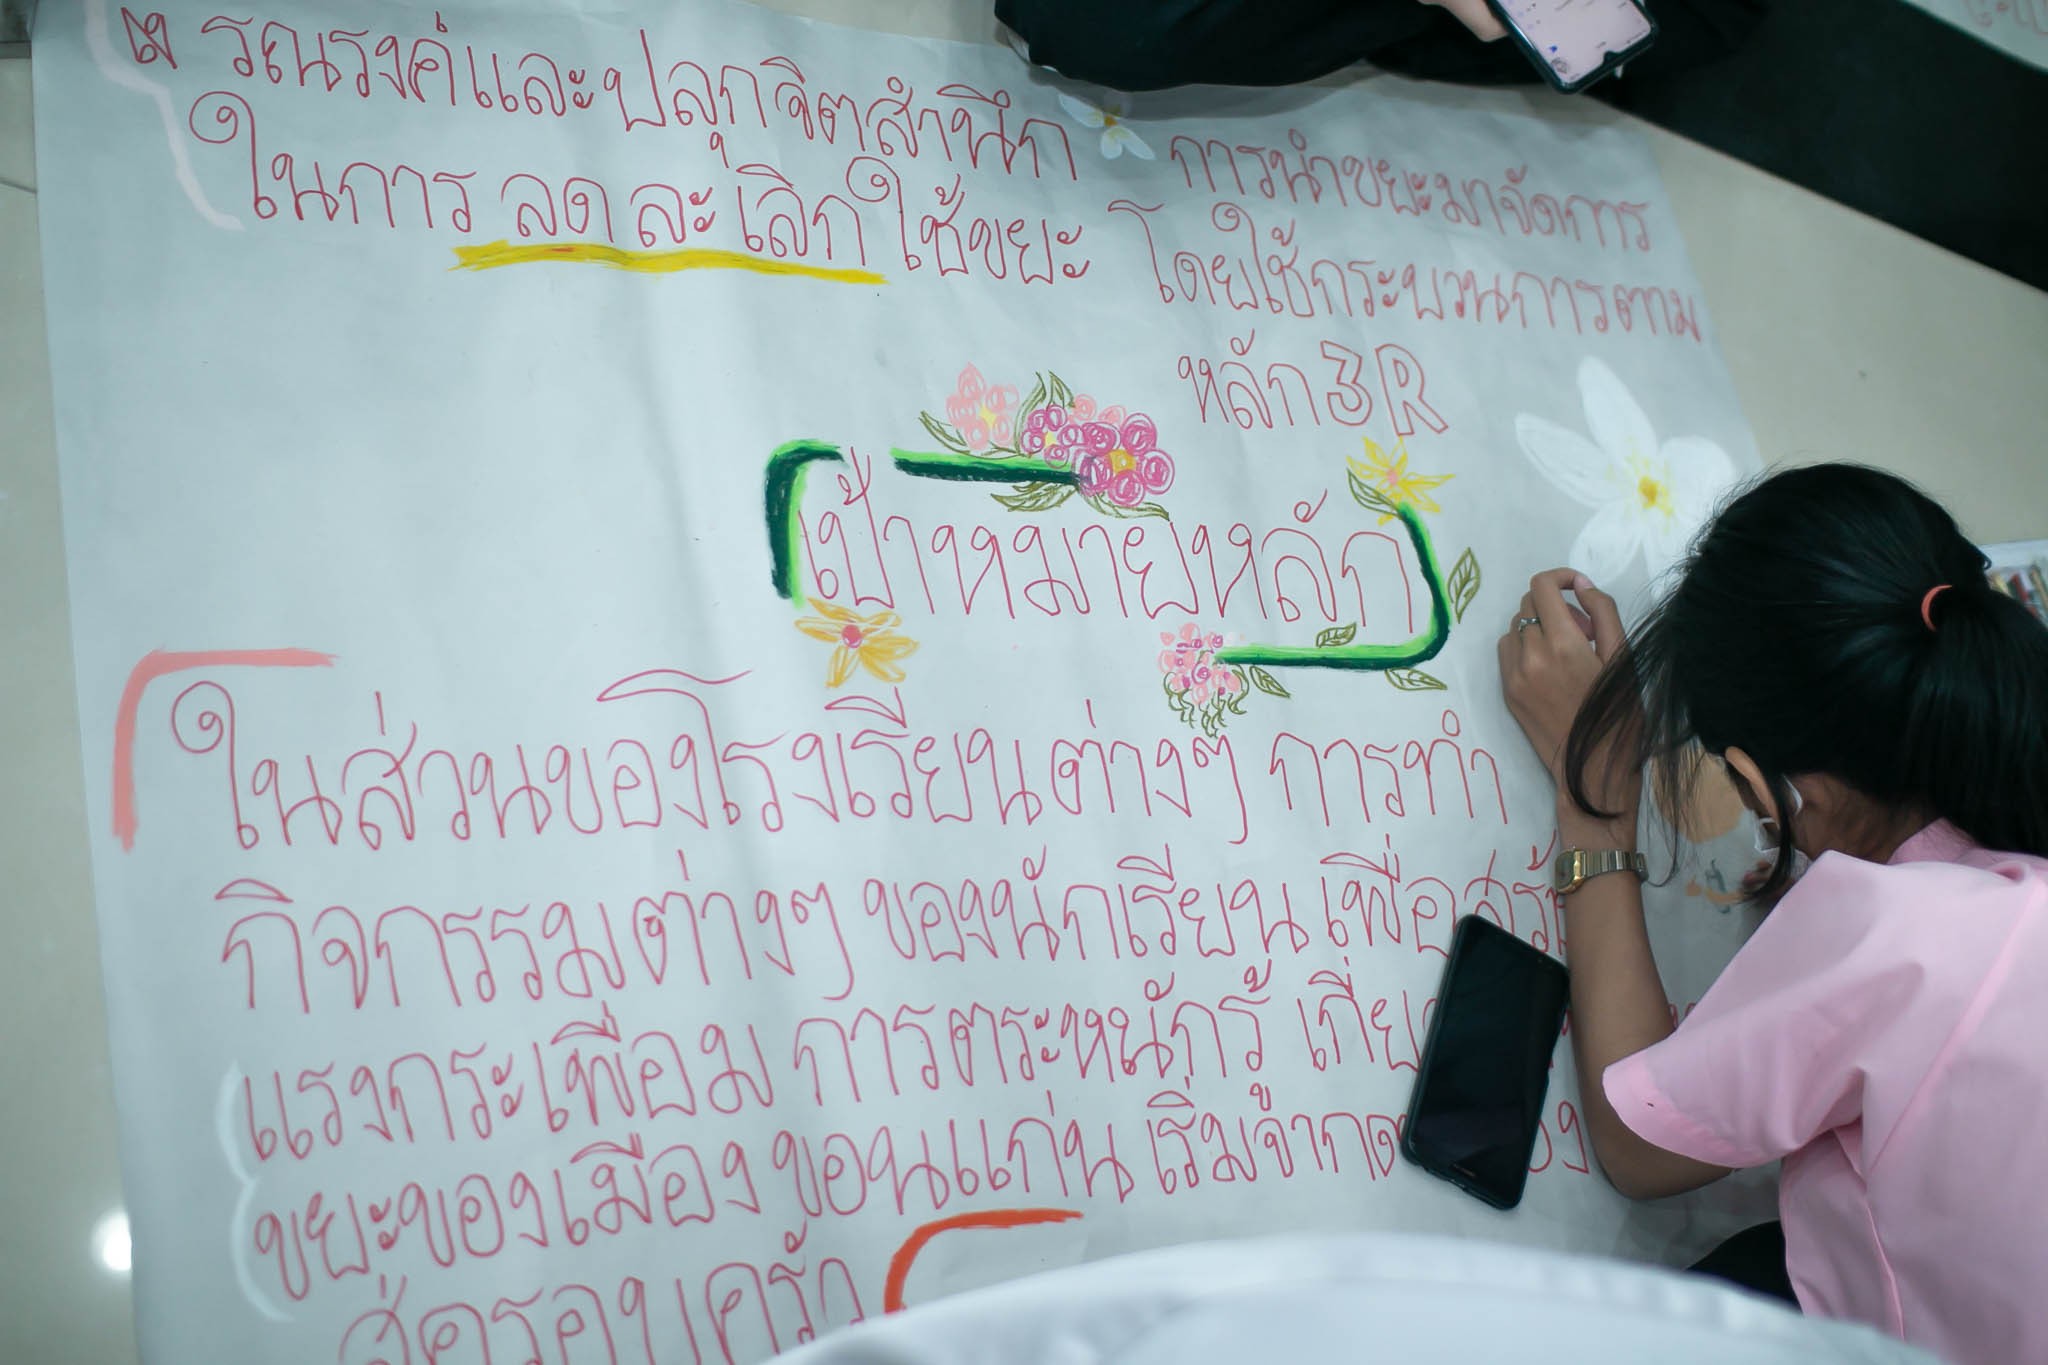 รณรงค์และปลุกจิตสำนึก
ในการ ลด ละ เลิก ใช้ขยะ
การนำขยะมาจัดการ
โดยใช้กระบวนการตาม
หลัก 3R
เป้าหมายหลัก
ในส่วนของโรงเรียนต่างๆ การทำ
กิจกรรมต่างๆ ของนักเรียน เพื่อ
แรงกระเพื่อม การตระหนักรู้
ขยะของเมือง ขอนแก่น เริ่ม
สู่ครอบครัว